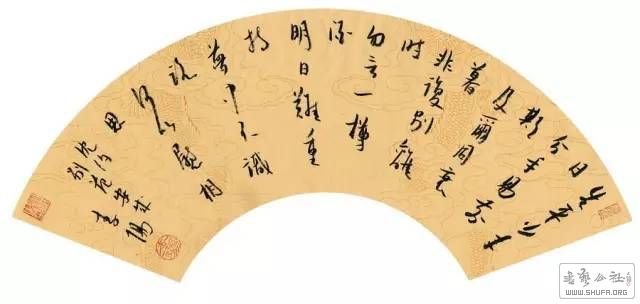 生平少年
日
分手易前
期
及爾同衰
暮
非復別離
時
勿言一樽
酒
明日難重
持
夢中不識
路
何以慰相
思
沈約
別范安成
書艺公社
WWW.SHUFA.ORG